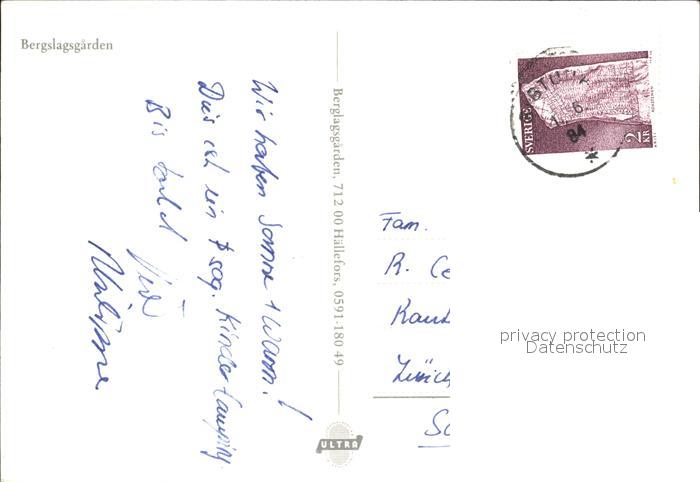 Bergslagsgården
Wir haben Sonne + Warm!
Dies ist ein sog. Kindercamping
Bis bald
Berglagsgården, 712 00 Hällefors, 0591-180 49
ULTRA
SVERIGE
2 KR
84
Fam.
R. Ce
Zürich
privacy protection
Datenschutz